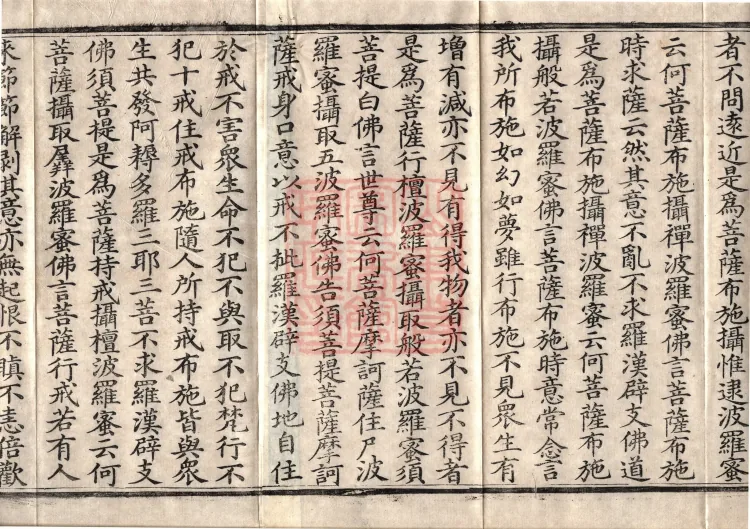 者不問遠近是為菩薩布施攝惟逮波羅蜜
云何菩薩布施攝禪波羅蜜佛言菩薩布施
時求薩云然其意不亂不求羅漢辟支佛道
是為菩薩布施攝禪波羅蜜云何菩薩布施
攝般若波羅蜜佛言菩薩布施時意常念言
我所布施如幻如夢雖行布施不見眾生有
增有減亦不見有得我物者亦不見不得者
是為菩薩行檀波羅蜜攝取般若波羅蜜須
菩提白佛言世尊云何菩薩摩訶薩住尸波
羅蜜攝取五波羅蜜佛告須菩提菩薩摩訶
薩戒身口意以戒不枇羅漢辟支佛地自住
於戒不害眾生命不犯不與取不犯梵行不
犯十戒住戒布施隨人所持戒布施皆與眾
生共發阿耨多羅三耶三菩不求羅漢辟支
佛須菩提是為菩薩持戒攝檀波羅蜜云何
菩薩攝取羼波羅蜜佛言菩薩行戒若有人
來節節解剝其意亦無起恨不瞋不恚倍歡